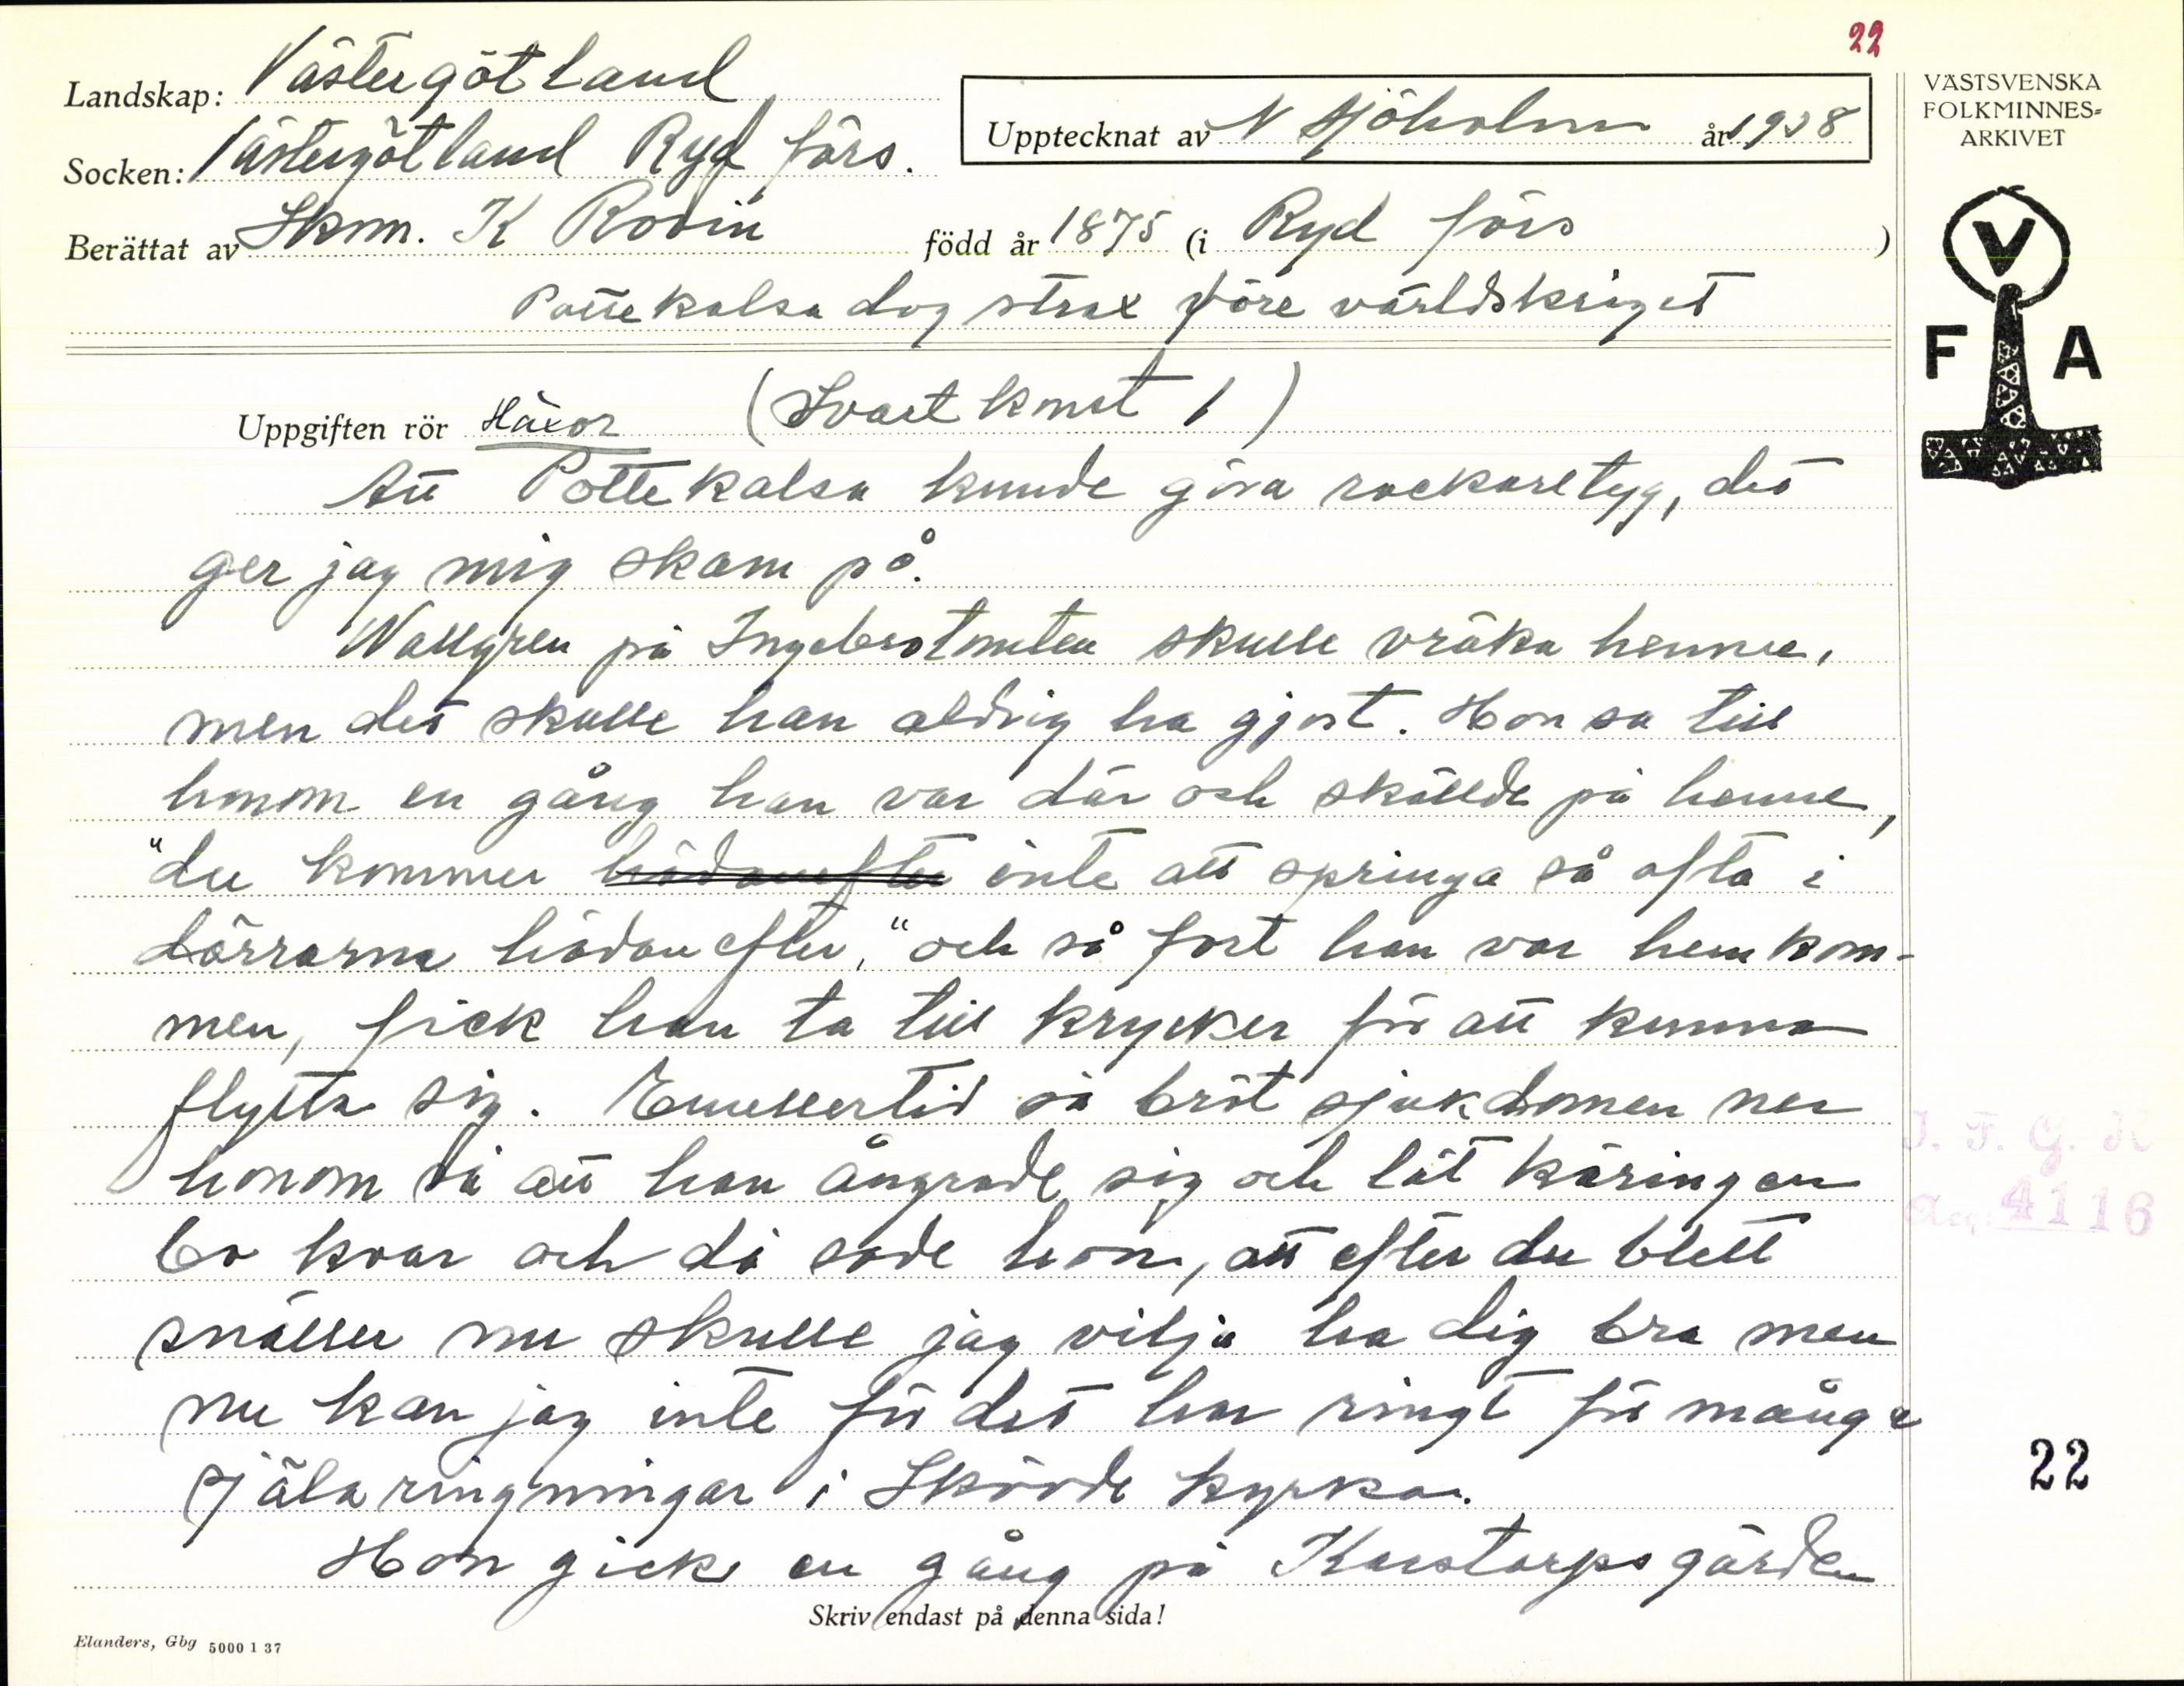 22
Landskap: Västergötland
Socken: Västergötland Ryd förs.
Upptecknat av N Sjöholm år 1938
Berättat av Skm. K Rodin född år 1875 (i Ryd förs )
Pottekalsa dog strax före världskriget
Uppgiften rör Häxor (Svartkonst 1)
Att Pottekalsa kunde göra rackaretyg, det
ger jag mig skam på.
Wallgren på skulle vräka henne,
men det skulle han aldrig ha gjort. Hon sa till
honom en gång han var där och skällde på henne,
"du kommer hädanefter inte att springa så ofta i
dörrarna hädanefter," och så fort han var hemkom-
men, fick han ta till krycker för att kunna
flytta sig. Emellertid så bröt sjukdomen ner
honom så att han ångrade sig och lät käringen
bo kvar och då sade hon, att efter du blett
snäller nu skulle jag vilja ha dig bra men
nu kan jag inte för det har ringt för många
själaringningar i Skövde kyrka.
Hon gick en gång på Karstorpsgärden
Skriv endast på denna sida!
Elanders, Gbg 5000 1 37
VÄSTSVENSKA
FOLKMINNES=
ARKIVET
V
F A
I. F. G. H
Acc: 4116
22